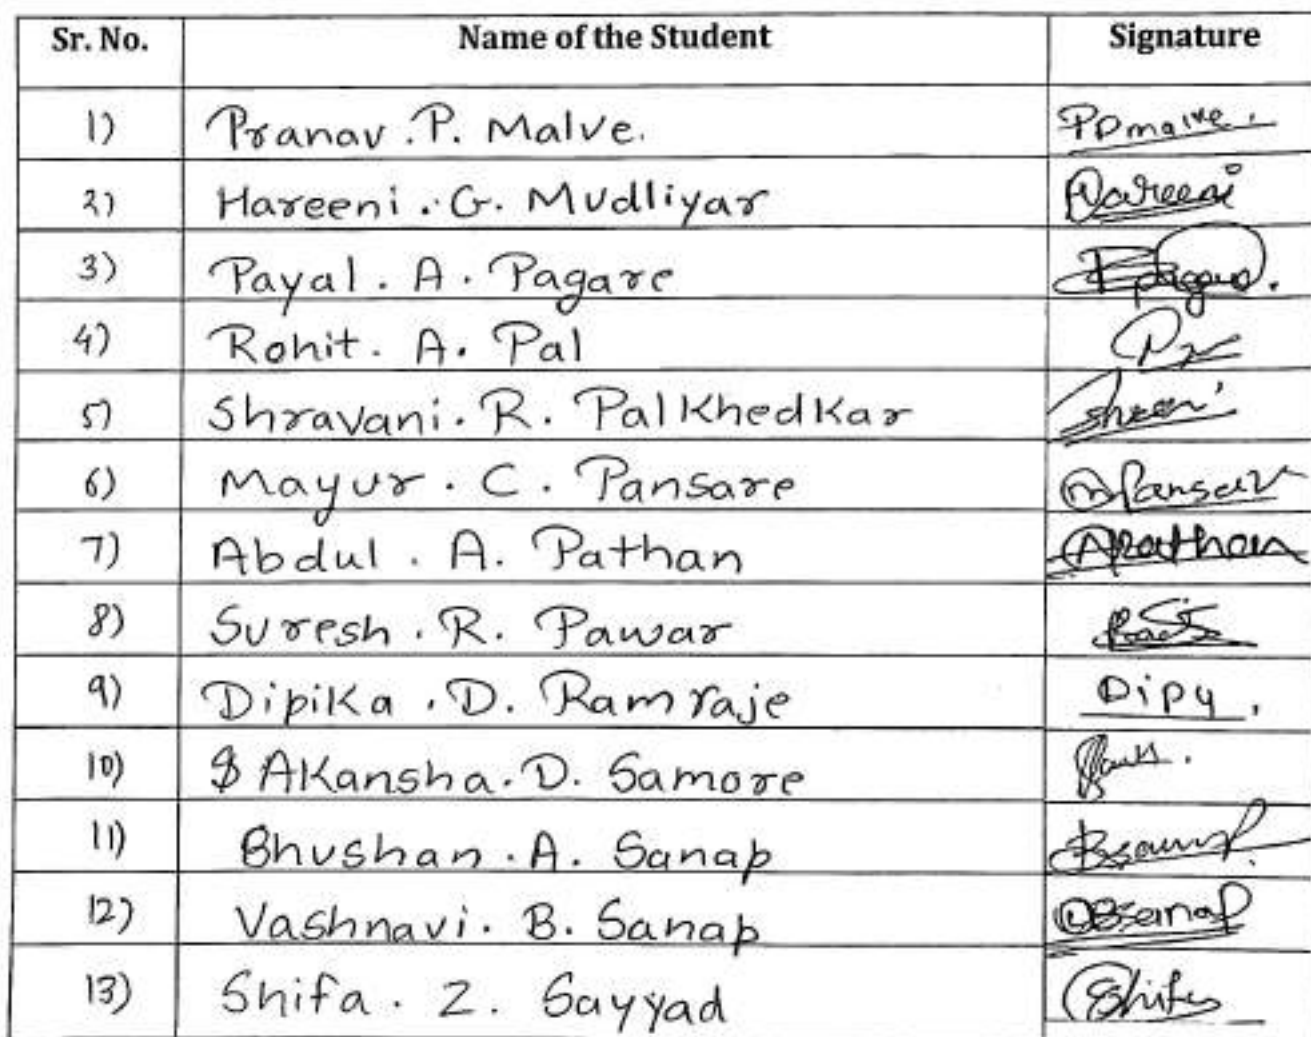 Sr. No. Name of the Student Signature
1) Pranav . P. Malve. PDmalve.
2) Hareeni . G. Mudliyar Hareeni
3) Payal . A . Pagare
4) Rohit . A. Pal
5) Shravani . R. Palkhedkar
6) Mayur . C . Pansare mPansare
7) Abdul . A. Pathan APathan
8) Suresh . R. Pawar
9) Dipika . D. Ramraje Dipy .
10) Akansha . D. Samore
11) Bhushan . A. Sanap
12) Vashnavi . B. Sanap
13) Shifa . Z. Sayyad Shifa